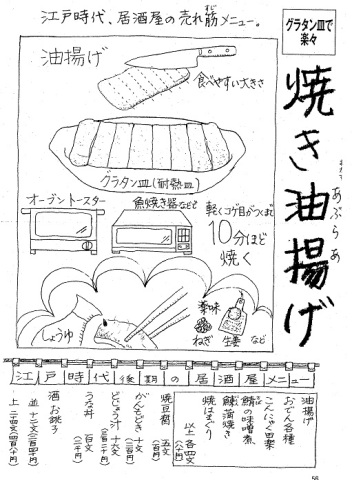 江戸時代、居酒屋の売れ筋メニュー。
グラタン皿で
楽々
焼き油揚げ
あぶらあ
油揚げ
食べやすい大きさ
グラタン皿(耐熱皿)
オーブントースター
魚焼き器などで
軽くコゲ目がつくまで
10分ほど
焼く
しょうゆ
薬味
ねぎ
生姜
など
江戸時代後期の居酒屋メニュー
油揚げ
おでん各種
こんにゃく田楽
鯖の味噌煮
鰊蒲焼き
焼はまぐり
以上 各四文
焼豆腐 五文
がんもどき 十文
どじょう汁 十六文
うな丼 百文
酒 お銚子
並 十二文
上 二四文
56